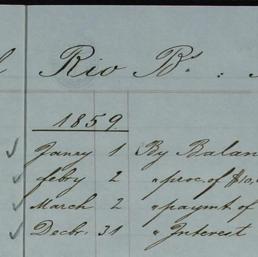 Rio Bs. :
1859.
Janey 1 By Balan
feby 2 " proc. of $10,
March 2 " paymt of
Decbr. 31 " Interest